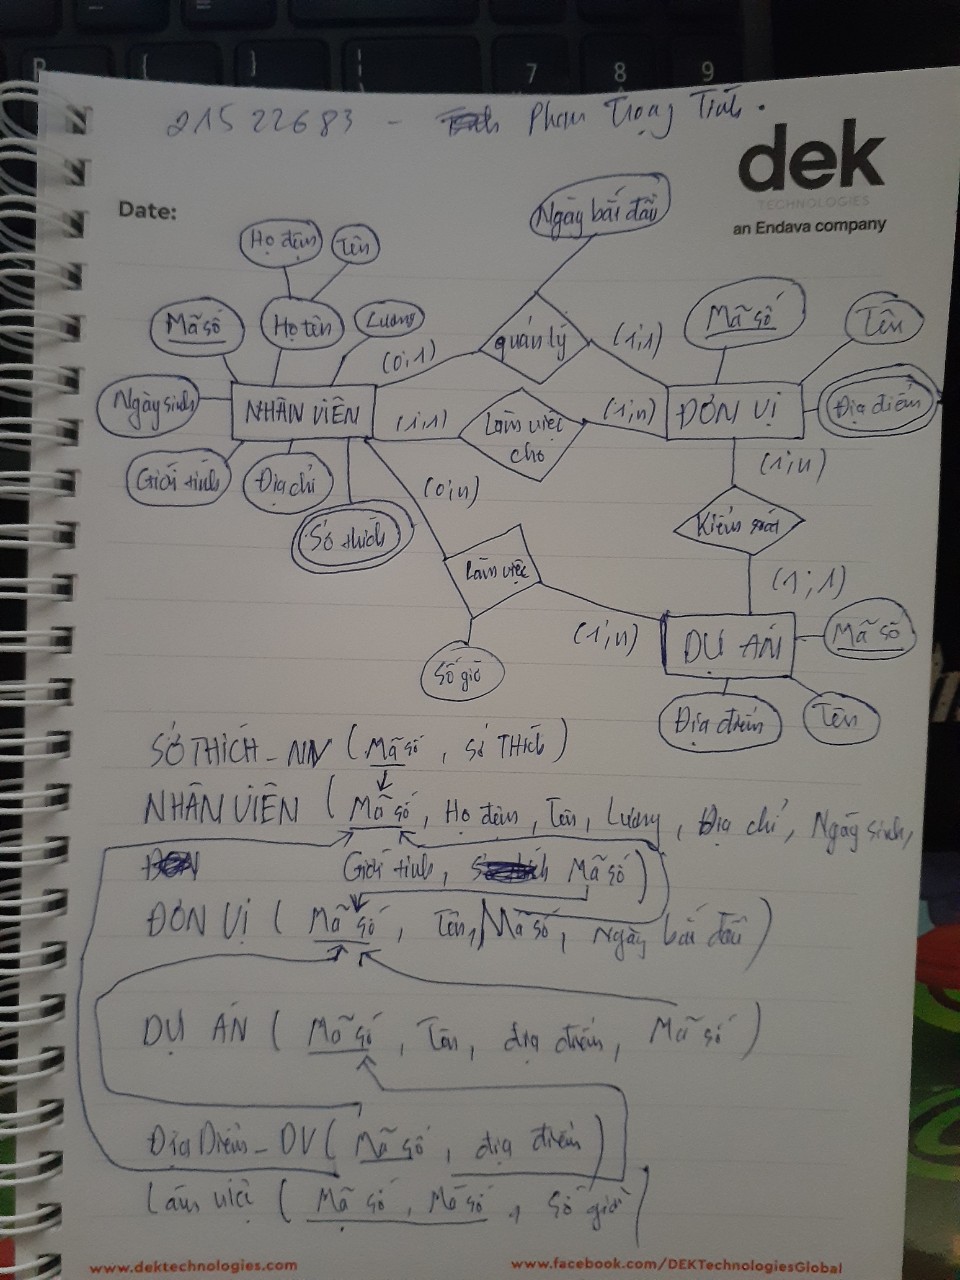 P { } | 7 8 9
21522683 - Phạm Trọng Tính.
dek
TECHNOLOGIES
an Endava company
Date:
Ngày bắt đầu
Họ đệm
Tên
Mã số
Họ tên
Lương
(0,1)
quản lý
(1,1)
Mã số
Tên
Ngày sinh
NHÂN VIÊN
(1,1)
Làm việc cho
(1,n)
ĐƠN VỊ
Địa điểm
Giới tính
Địa chỉ
(0,n)
(1,n)
Sở thích
Kiểm soát
Làm việc
(1,1)
(1,n)
DỰ ÁN
Mã số
Số giờ
Địa điểm
Tên
SỞ THÍCH_NN (Mã số, Sở THích)
NHÂN VIÊN (Mã số, Họ đệm, Tên, Lương, Địa chỉ, Ngày sinh,
Giới tính, Mã số)
ĐƠN VỊ (Mã số, Tên, Mã số, Ngày bắt đầu)
DỰ ÁN (Mã số, Tên, địa điểm, Mã số)
Địa Điểm_DV (Mã số, địa điểm)
Làm việc (Mã số, Mã số, Số giờ)
www.dektechnologies.com
www.facebook.com/DEKTechnologiesGlobal